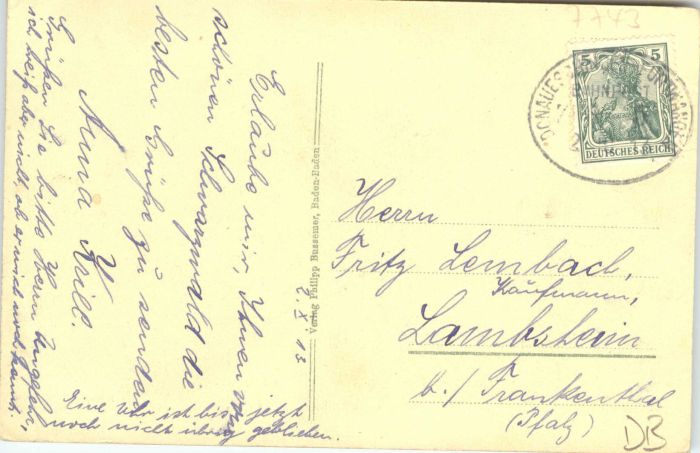 7743
5 5
DEUTSCHES REICH
BAHNPOST
Herrn
Fritz Lembach,
Kaufmann,
Lambsheim
b./ Frankenthal
(Pfalz)
DB
Verlag Philipp Bussemer, Baden-Baden
2. X. 13
Erlaube mir, Ihnen vom
schönen Schwarzwald die
besten Grüße zu senden
Anna Krill.
Grüßen Sie bitte Herrn
ich weiß aber nicht, ob er mich noch kennt.
Eine Uhr ist bis jetzt
noch nicht übrig geblieben.